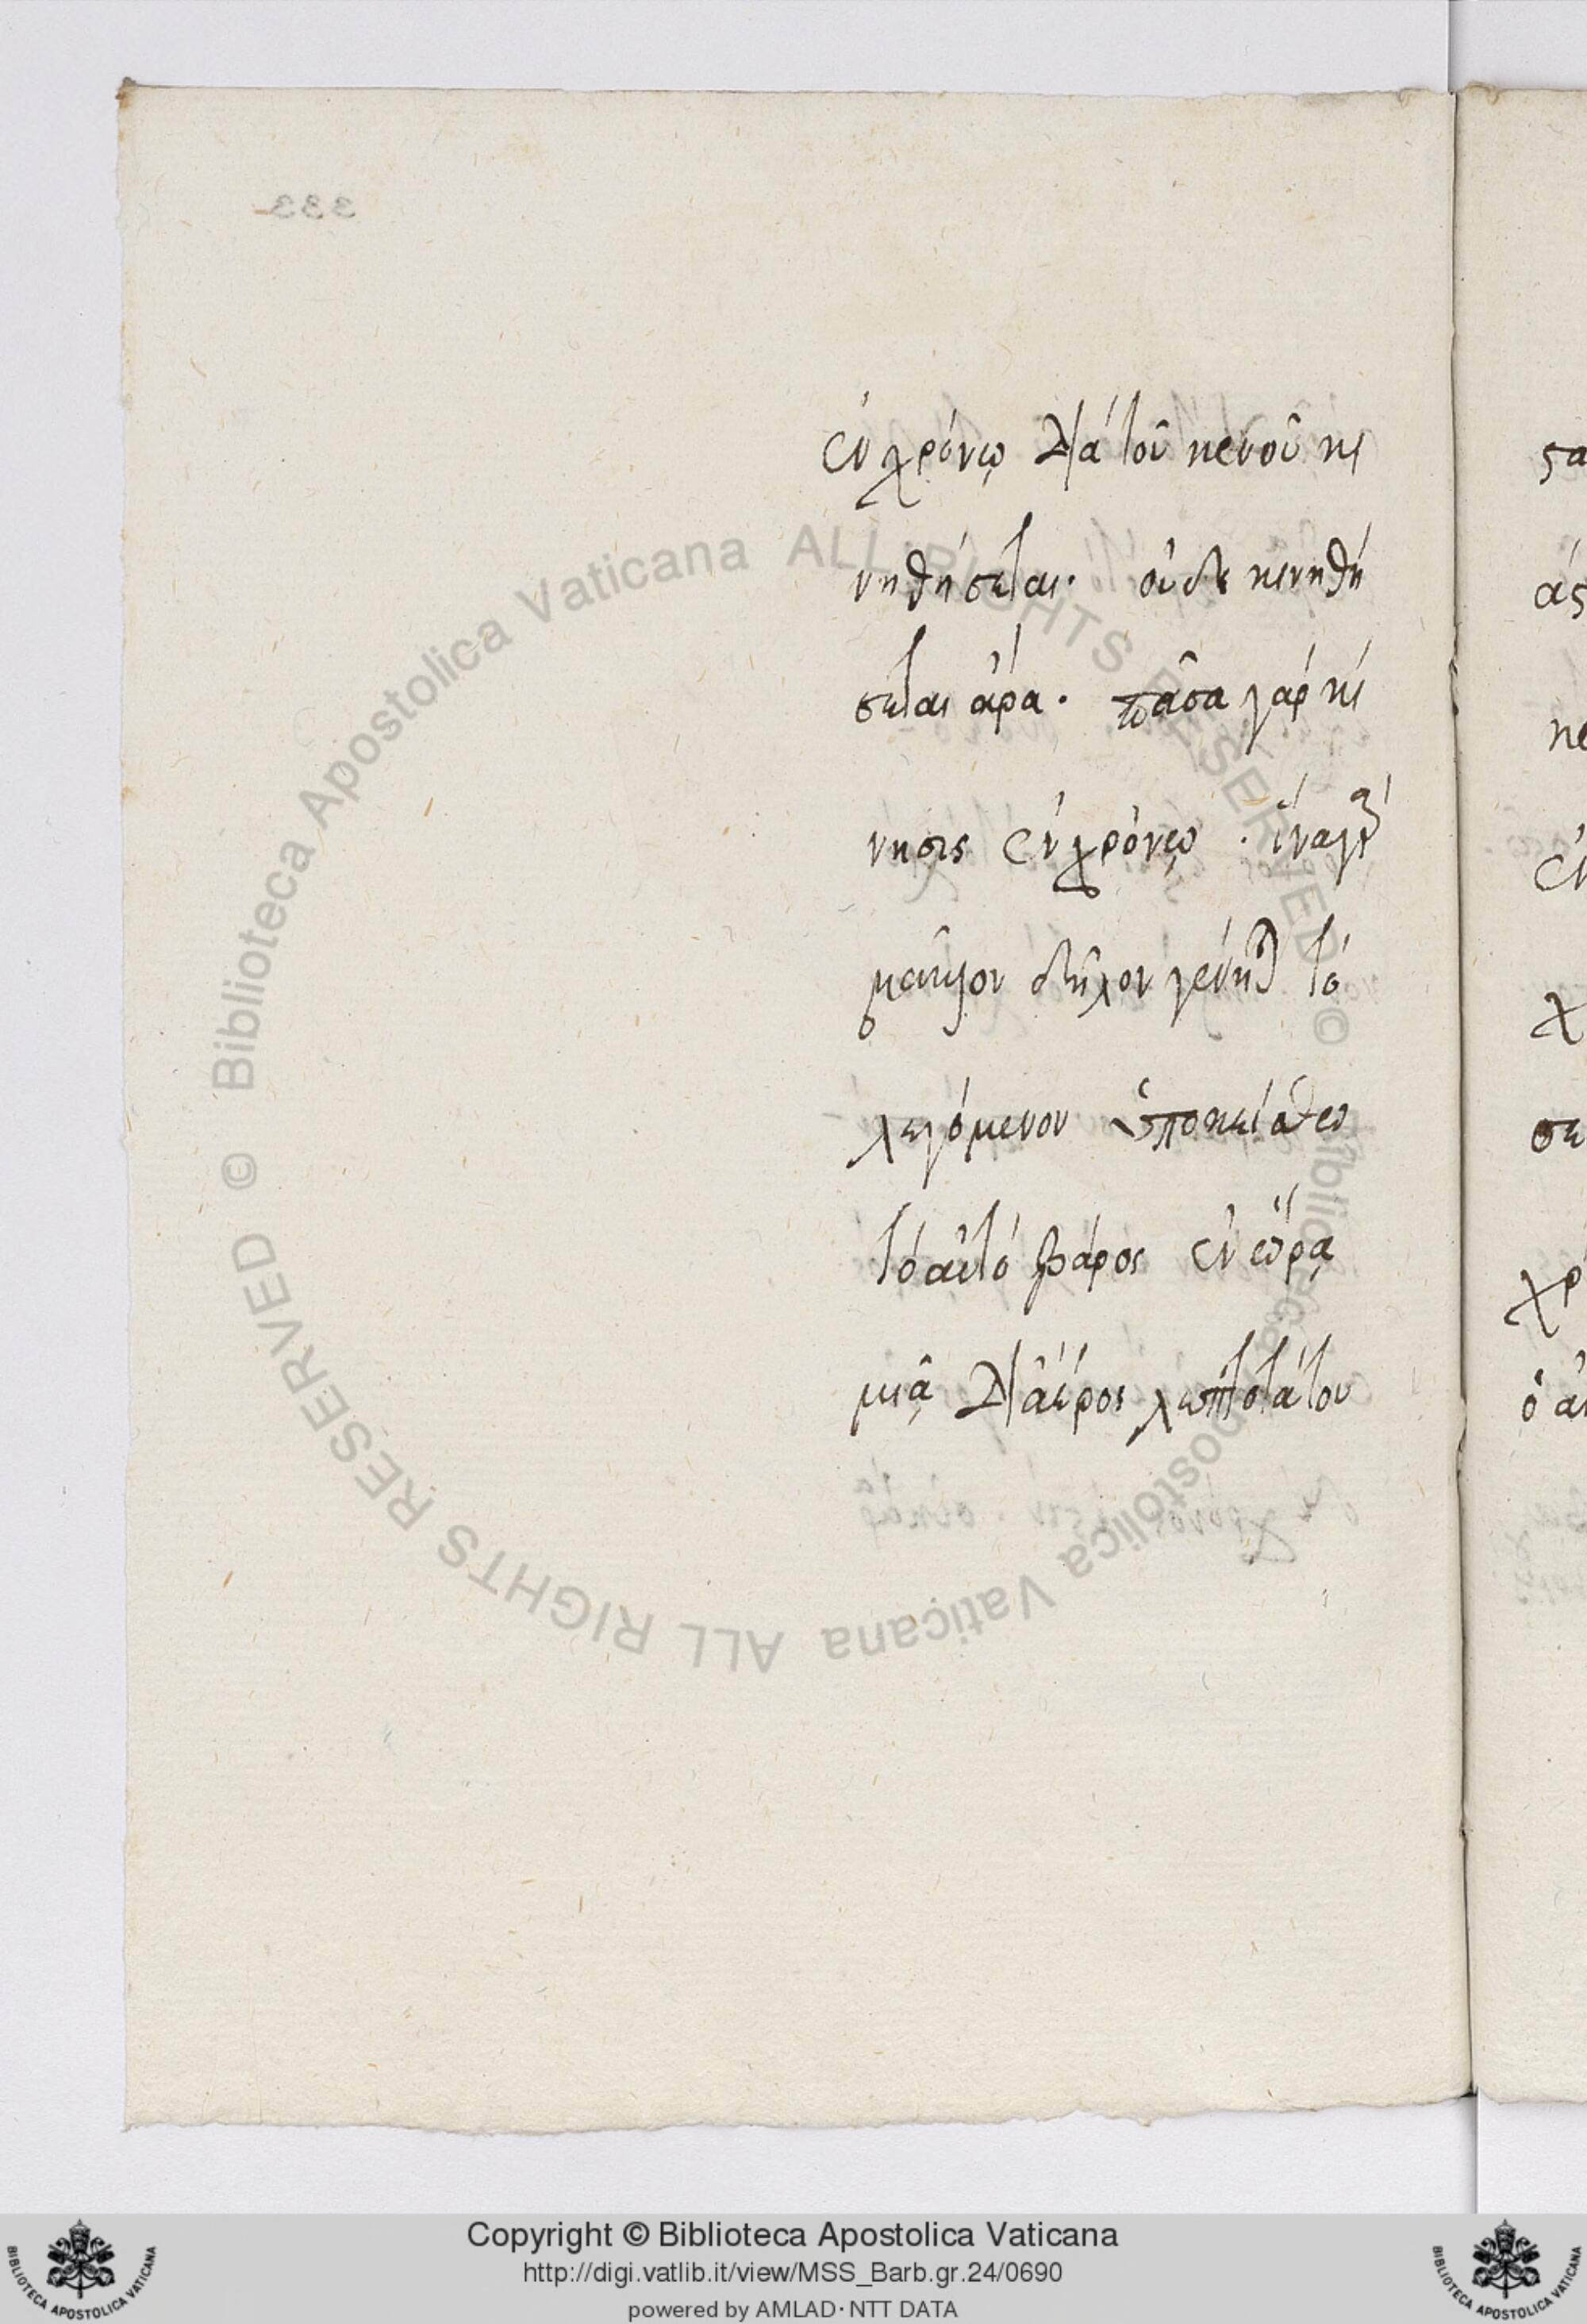 333
ἐν χρόνῳ διὰ τοῦ κενοῦ κι
νηθήσεται· οὐδὲ κινηθή
σεται ἄρα· πᾶσα γὰρ κί
νησις ἐν χρόνῳ · ἵνα γὰρ
μεῖζον δῆλον γένηται τὸ
λεγόμενον ὑποκείσθω
τὸ αὐτὸ βάρος ἐν ὥρᾳ
μιᾷ δι' ἀέρος λεπτοτάτου
© Biblioteca Apostolica Vaticana ALL RIGHTS RESERVED © Biblioteca Apostolica Vaticana ALL RIGHTS RESERVED
Copyright © Biblioteca Apostolica Vaticana
http://digi.vatlib.it/view/MSS_Barb.gr.24/0690
powered by AMLAD·NTT DATA
BIBLIOTECA APOSTOLICA VATICANA
BIBLIOTECA APOSTOLICA VATICANA